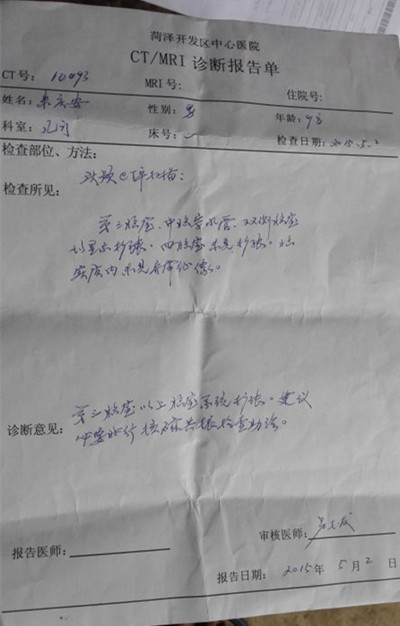 菏泽开发区中心医院
CT/MRI 诊断报告单
CT号: 10093 MRI号: 住院号:
姓名: 性别: 男 年龄: 9岁
科室: 床号: 检查日期: 2015.5.2
检查部位、方法:
检查所见: 头颅CT平扫描:
第三脑室、中脑导水管、双侧脑室
明显扩张。四脑室未见扩张。脑
实质内未见异常征像。
第三脑室以上脑室系统扩张。建议
诊断意见: 必要时行核磁共振检查助诊。
审核医师:
报告医师:
报告日期: 2015年 5月 2日